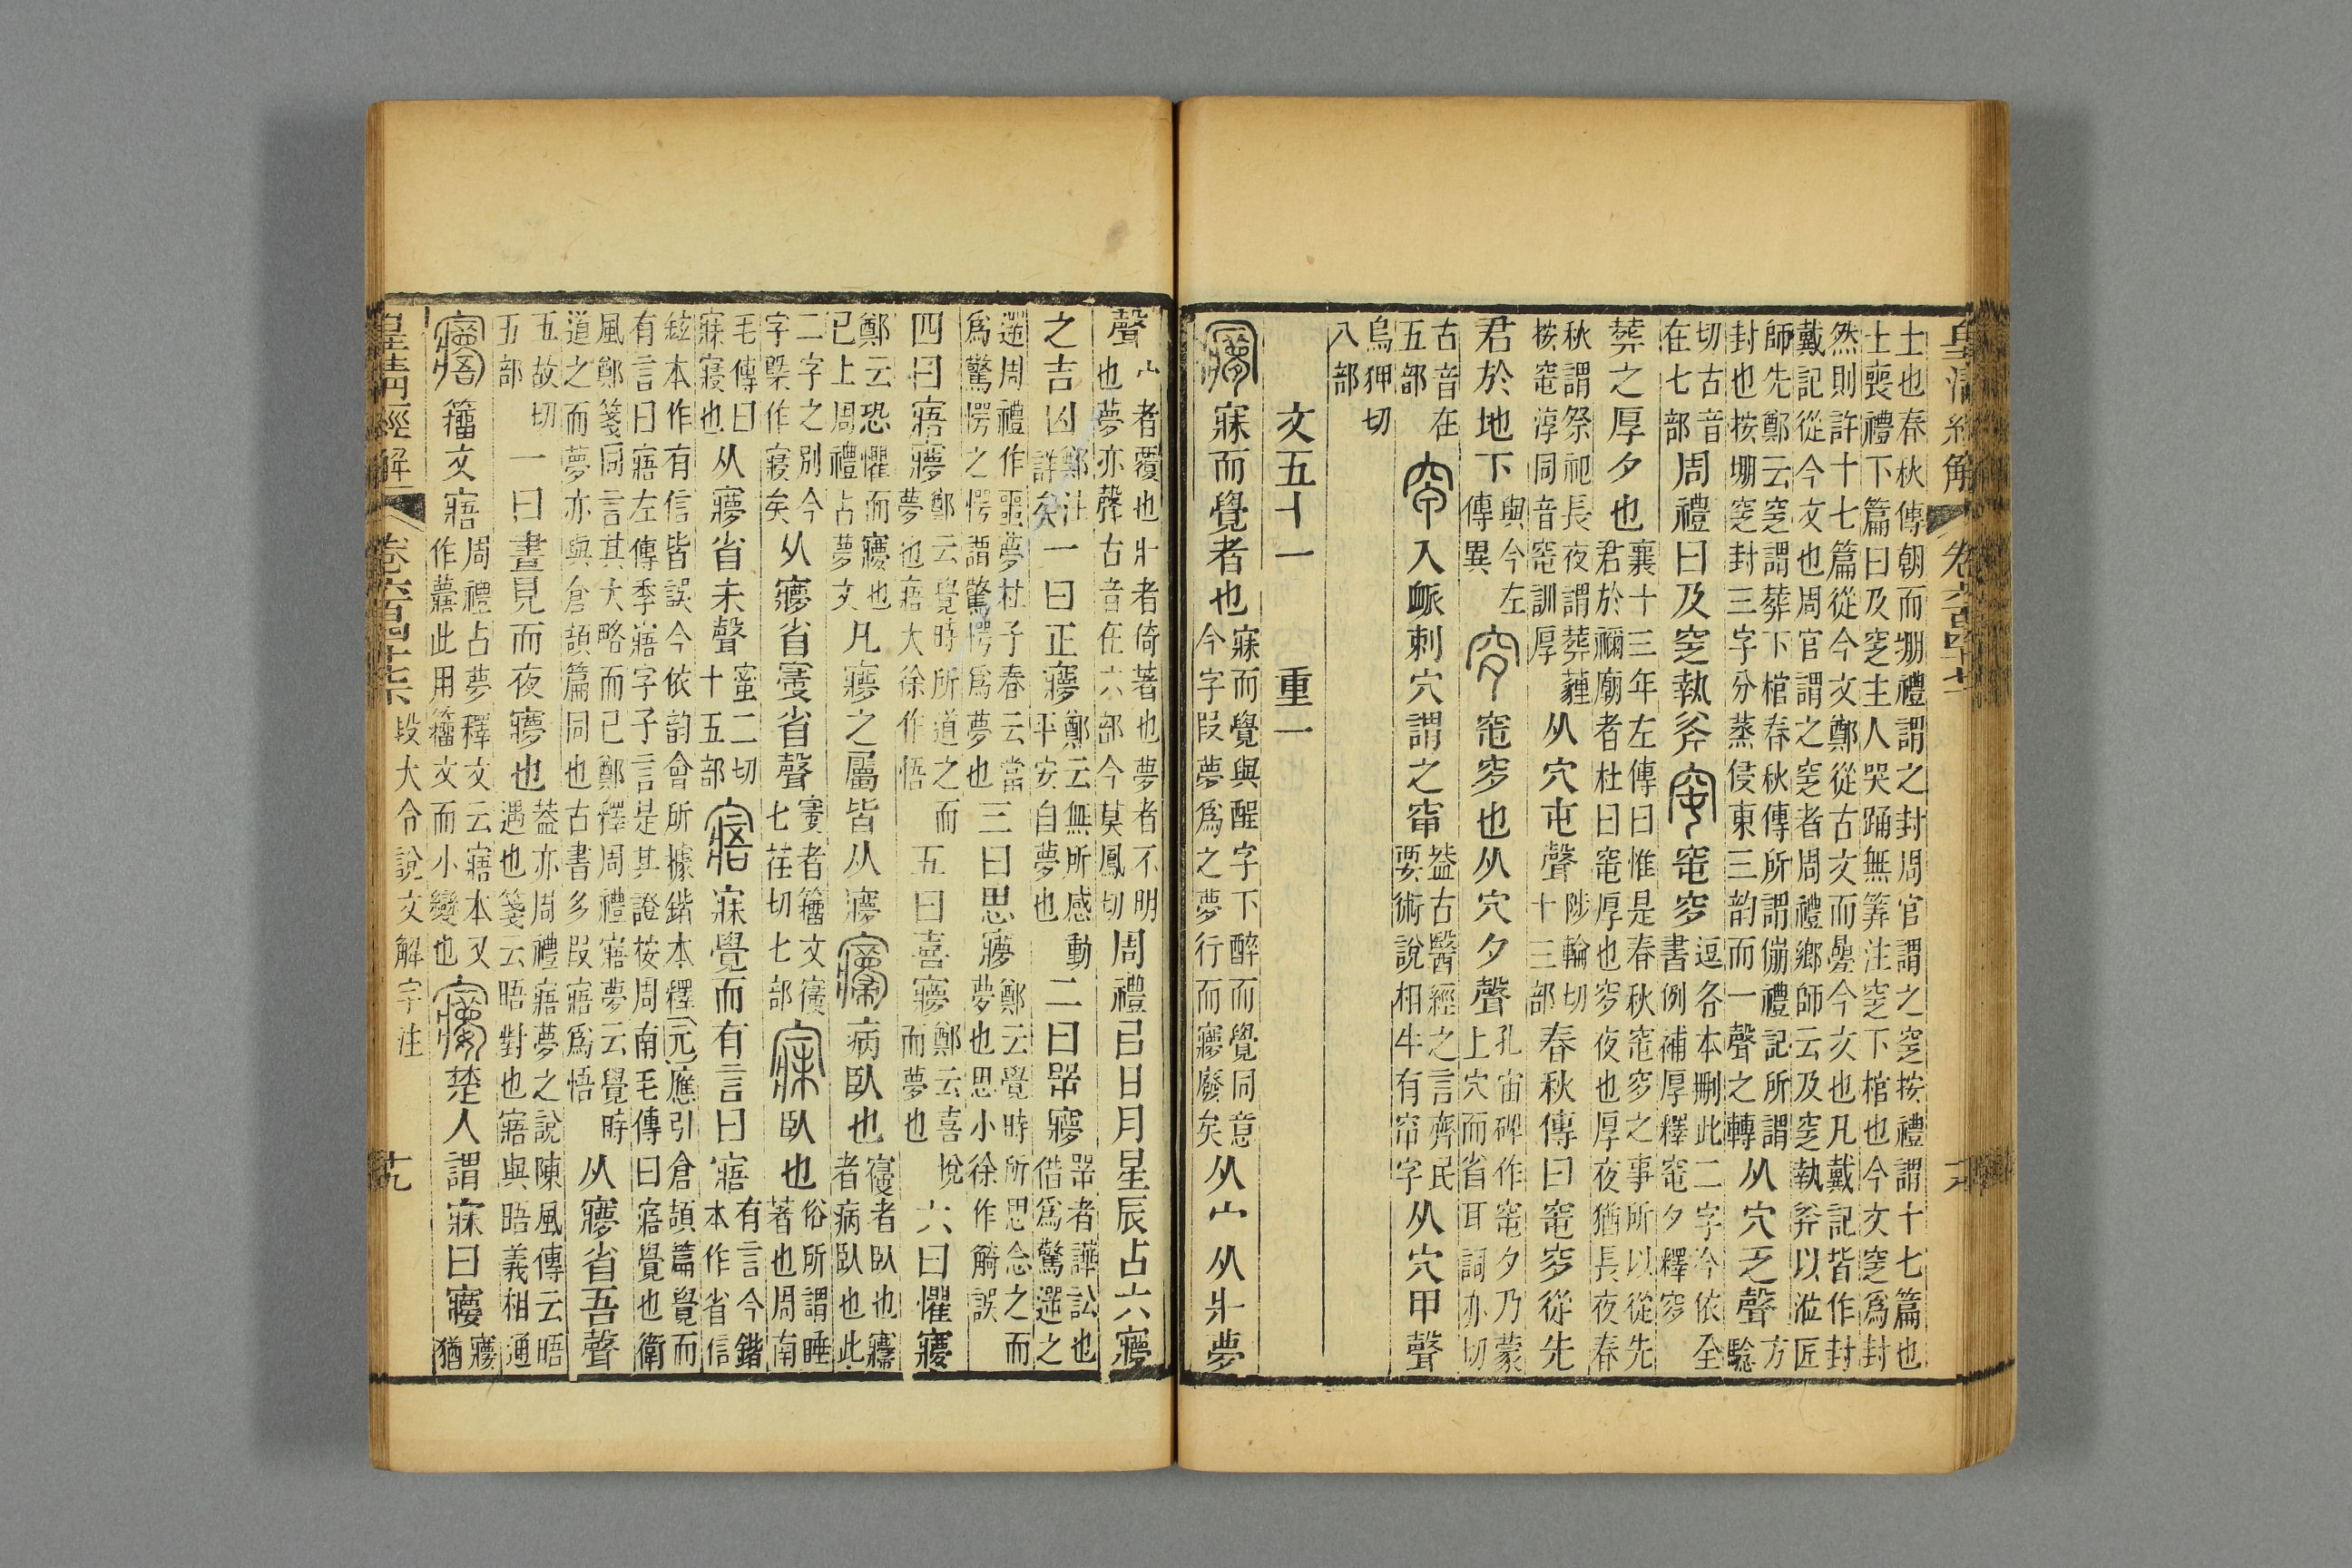 皇清經解 卷六百四十七 大
士也春秋傳朝而堋禮謂之封周官謂之窆按禮謂十七篇也
士喪禮下篇曰及窆主人哭踊無筭注窆下棺也今文窆爲封
然則許十七篇從今文鄭從古文而疊今文也凡戴記皆作封
戴記從今文也周官謂之窆者周禮鄉師云及窆執斧以涖匠
師先鄭云窆謂葬下棺春秋傳所謂傰禮記所謂
封也按堋窆封三字分蒸侵東三韵而一聲之轉 从穴乏聲 方騐
切古音在七部 周禮曰及窆執斧 窀 窀穸 逗各本刪此二字今依全書例補厚釋窀夕釋穸
葬之厚夕也 襄十三年左傳曰惟是春秋窀穸之事所以從先君於禰廟者杜曰窀厚也穸夜也厚夜猶長夜春
秋謂祭祀長夜謂葬薶按窀淳同音窀訓厚 从穴屯聲 陟輪切十三部 春秋傳曰窀穸從先
君於地下 與今左傳異 穸 窀穸也从穴夕聲 孔宙碑作窀夕乃蒙上穴而省耳詞亦切
古音在五部 𥥆 入衇刺穴謂之𥥆 蓋古醫經之言齊民要術說相牛有𥥆字 从穴甲聲
烏狎切八部
文五十一 重一
㝱 寐而覺者也 寐而覺與醒字下醉而覺同意今字叚夢爲之夢行而㝱廢矣 从宀从爿夢
聲 宀者覆也爿者倚著也夢者不明也夢亦聲古音在六部今莫鳳切 周禮㠯日月星辰占六㝱
之吉凶 鄭注詳矣 一曰正㝱 鄭云無所感動平安自夢也 二曰咢㝱 咢者譁訟也借爲驚遻之
遻周禮作噩夢杜子春云當爲驚愕之愕謂驚愕爲夢也 三曰思㝱 鄭云覺時所思念之而夢也思小徐作觭誤
四曰寤㝱 鄭云覺時所道之而夢也寤大徐作悟 五曰喜㝱 鄭云喜悅而夢也 六曰懼㝱
鄭云恐懼而㝱也已上周禮占夢文 凡㝱之屬皆从㝱 㝲 病臥也 寑者臥也㝲者病臥也此
二字之別今字槩作寢矣 从㝱省㝮省聲 㝮者籒文寑七荏切七部 寐 臥也 俗所謂睡著也周南
毛傳曰寐寢也 从㝱省未聲 蜜二切十五部 寤 寐覺而有言曰寤 有言今鍇本作省信
鉉本作有信皆誤今依韵會所據鍇本釋元應引倉頡篇覺而有言曰寤左傳季寤字子言是其證按周南毛傳曰寤覺也衛
風鄭箋同言其大略而已鄭釋周禮寤夢云覺時道之而夢亦與倉頡篇同也古書多叚寤爲悟 从㝱省吾聲
五故切五部 一曰晝見而夜㝱也 蓋亦周禮寤夢之說陳風傳云晤遇也箋云晤對也寤與晤義相通
籒文寤 周禮占夢釋文云寤本又作此用籒文而小變也 楚人謂寐曰 猶
皇清經解 卷六百四十七 段大令說文解字注 十九